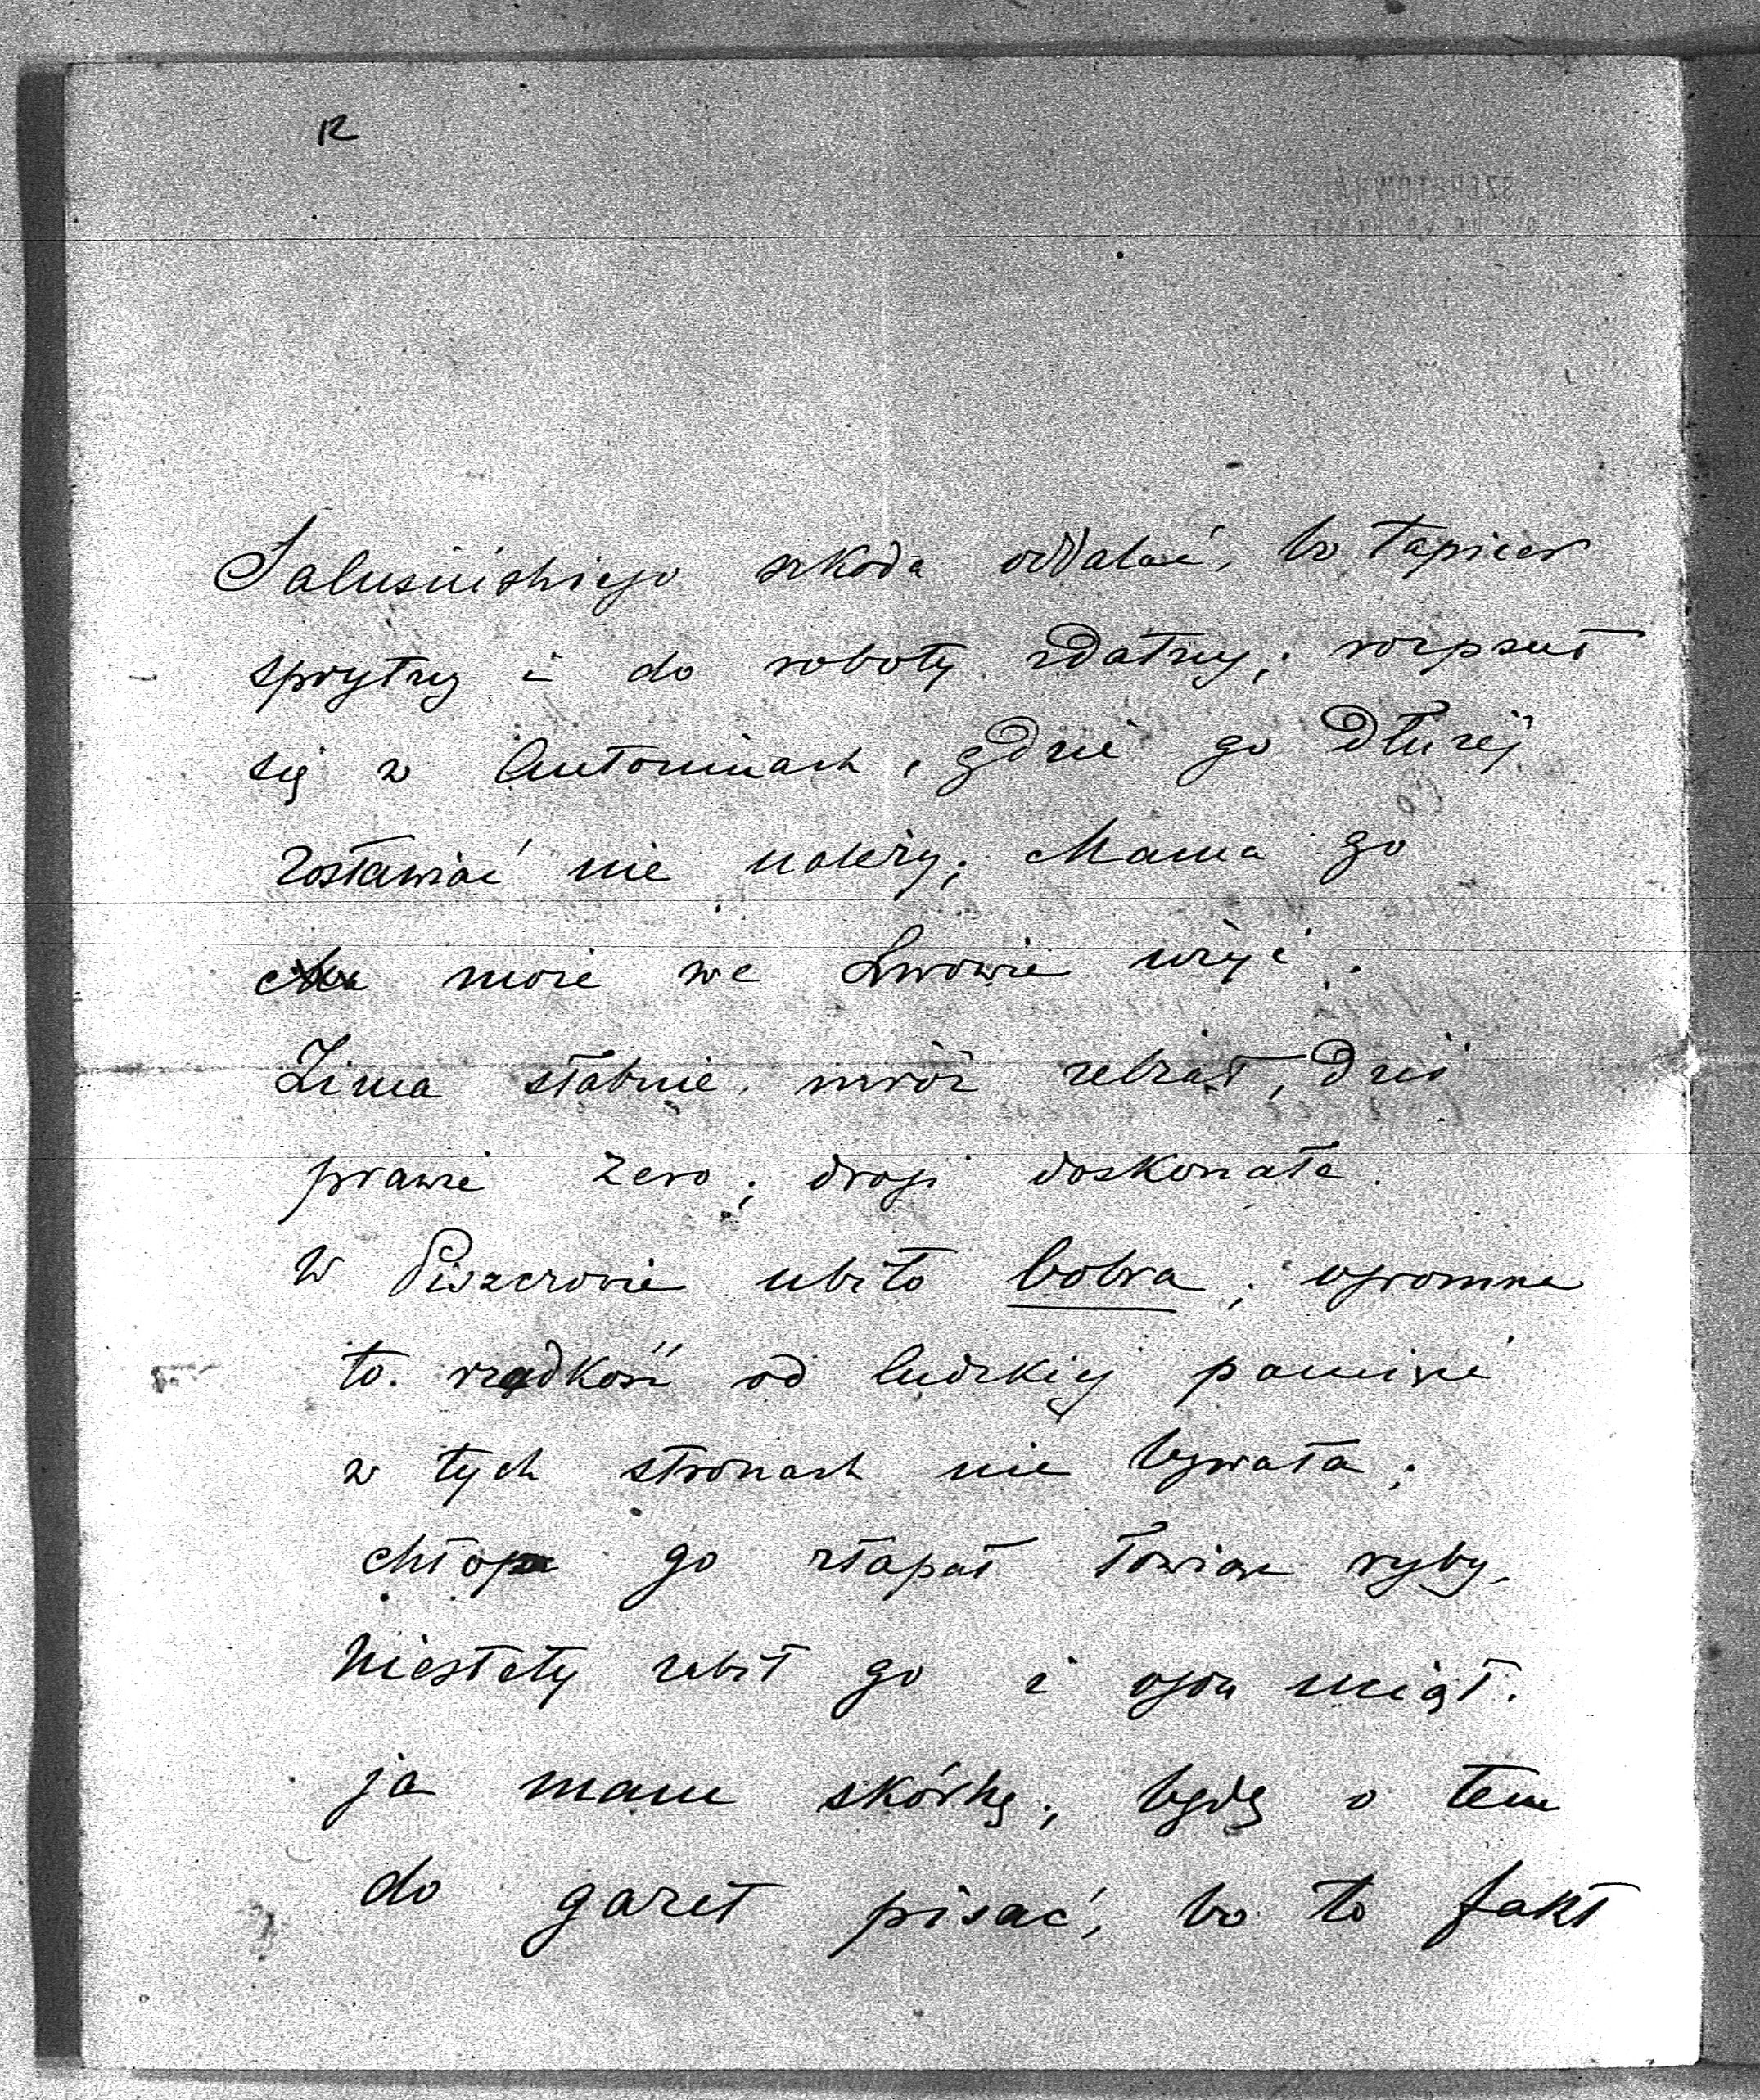 12
Saluśińskiego szkoda oddalać, bo tapicer
sprytny i do roboty zdatny; rozpsuł
się w Antoninach, gdzie go dłużej
zostawiać nie należy; Mama go
może we Lwowie użyć.
Zima słabnie, mróz zelżał, dziś
prawie zero; drogi doskonałe.
W Piszczowie ubito bobra; ogromna
to rzadkość od ludzkiej pamięci
w tych stronach nie bywała;
chłop go złapał łowiąc ryby,
Niestety zabił go i ogon uciął.
ja mam skórkę; będę o tem
do gazet pisać, bo to fakt